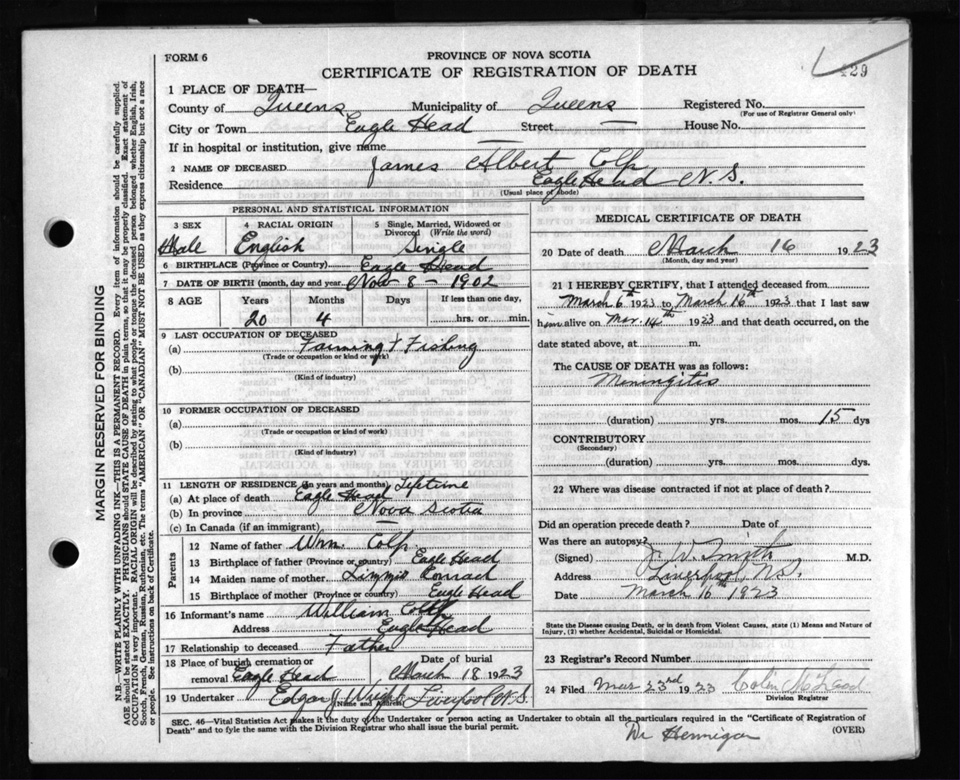 FORM 6
PROVINCE OF NOVA SCOTIA
CERTIFICATE OF REGISTRATION OF DEATH
29
1 PLACE OF DEATH—
County of Queens Municipality of Queens Registered No.
(For use of Registrar General only)
City or Town Eagle Head Street — House No.
If in hospital or institution, give name —
2 NAME OF DECEASED James Albert Colp
Residence Eagle Head N. S.
(Usual place of abode)
PERSONAL AND STATISTICAL INFORMATION
3 SEX 4 RACIAL ORIGIN 5 Single, Married, Widowed or Divorced (Write the word)
Male English Single
6 BIRTHPLACE (Province or Country) Eagle Head
7 DATE OF BIRTH (month, day and year) Nov 8 - 1902
8 AGE Years Months Days If less than one day,
20 4 hrs. or min.
9 LAST OCCUPATION OF DECEASED
(a) Farming & Fishing
(Trade or occupation or kind of work)
(b)
(Kind of industry)
10 FORMER OCCUPATION OF DECEASED
(a)
(Trade or occupation or kind of work)
(b)
(Kind of industry)
11 LENGTH OF RESIDENCE (in years and months) Lifetime
(a) At place of death Eagle Head
(b) In province Nova Scotia
(c) In Canada (if an immigrant)
Parents
12 Name of father Wm. Colp
13 Birthplace of father (Province or country) Eagle Head
14 Maiden name of mother Conrad
15 Birthplace of mother (Province or country) Eagle Head
16 Informant's name William Colp
Address Eagle Head
17 Relationship to deceased Father
18 Place of burial, cremation or removal Eagle Head Date of burial March 18 1923
19 Undertaker Edgar J Wright Liverpool N.S.
(Name and address)
MEDICAL CERTIFICATE OF DEATH
20 Date of death March 16 1923
(Month, day and year)
21 I HEREBY CERTIFY, that I attended deceased from
March 6th 1923 to March 16th 1923 that I last saw
him alive on Mar. 14th 1923 and that death occurred, on the
date stated above, at m.
The CAUSE OF DEATH was as follows:
Meningitis
(duration) yrs. mos. 15 dys
CONTRIBUTORY
(Secondary)
(duration) yrs. mos. dys.
22 Where was disease contracted if not at place of death?
Did an operation precede death? Date of
Was there an autopsy?
(Signed) J. W. Smith M.D.
Address Liverpool N.S.
Date March 16th 1923
State the Disease causing Death, or in death from Violent Causes, state (1) Means and Nature of
Injury, (2) whether Accidental, Suicidal or Homicidal.
23 Registrar's Record Number
24 Filed Mar 23rd 1923
Division Registrar
SEC. 46—Vital Statistics Act makes it the duty of the Undertaker or person acting as Undertaker to obtain all the particulars required in the "Certificate of Registration of
Death" and to fyle the same with the Division Registrar who shall issue the burial permit.
(OVER)
Dr Hennigar
MARGIN RESERVED FOR BINDING
N.B.—WRITE PLAINLY WITH UNFADING INK—THIS IS A PERMANENT RECORD. Every item of information should be carefully supplied.
AGE should be stated EXACTLY. PHYSICIANS should STATE CAUSE OF DEATH in plain terms, so that it may be properly classified. Exact statement of
OCCUPATION is very important. RACIAL ORIGIN will be described by stating to what people or tongue the deceased person belonged whether English, Irish,
Scotch, French, German, Russian, Ruthenian, etc. The terms "AMERICAN" or "CANADIAN" MUST NOT BE USED as they express citizenship but not a race
or people. See instructions on back of Certificate.